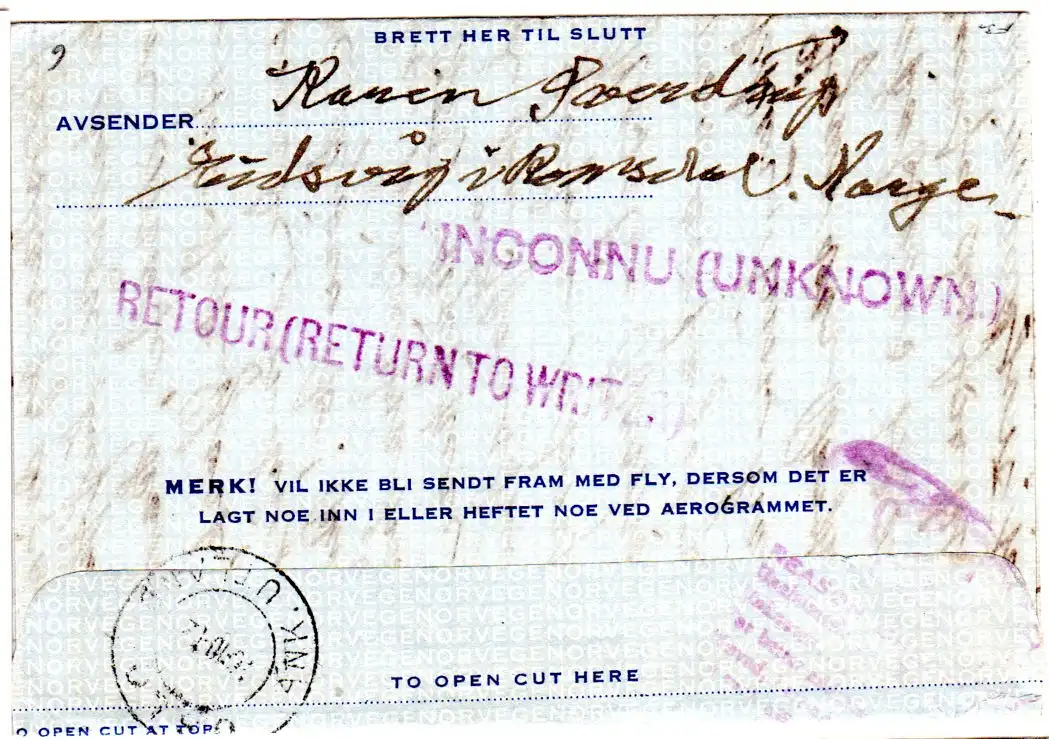 BRETT HER TIL SLUTT
AVSENDER Karen Sverdrup
Eidsvåg i Romsdal. Norge
INCONNU (UNKNOWN.)
RETOUR (RETURN TO WRIT
MERK! VIL IKKE BLI SENDT FRAM MED FLY, DERSOM DET ER
LAGT NOE INN I ELLER HEFTET NOE VED AEROGRAMMET.
REASON
ANK. UTLAND
OSLO
TO OPEN CUT HERE
O OPEN CUT AT TOP